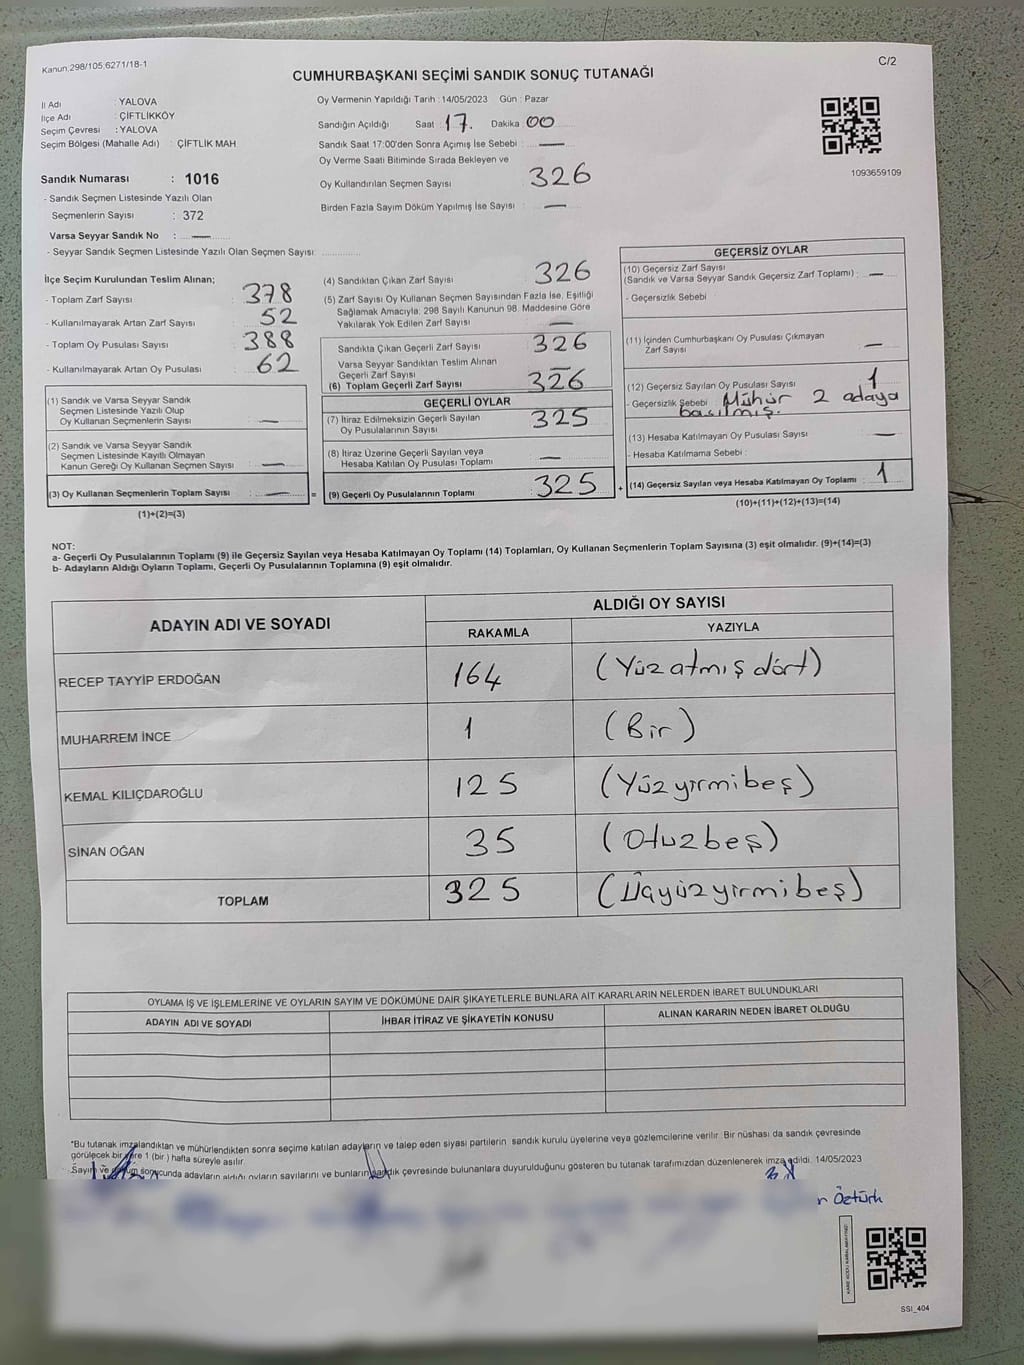 Kanun.298/105,6271/18-1
C/2
CUMHURBAŞKANI SEÇİMİ SANDIK SONUÇ TUTANAĞI
İl Adı : YALOVA
İlçe Adı : ÇİFTLİKKÖY
Seçim Çevresi : YALOVA
Seçim Bölgesi (Mahalle Adı) : ÇİFTLİK MAH
Sandık Numarası : 1016
- Sandık Seçmen Listesinde Yazılı Olan
Seçmenlerin Sayısı : 372
Varsa Seyyar Sandık No : —
- Seyyar Sandık Seçmen Listesinde Yazılı Olan Seçmen Sayısı:
Oy Vermenin Yapıldığı Tarih : 14/05/2023 Gün : Pazar
Sandığın Açıldığı Saat 17. Dakika 00
Sandık Saat 17:00'den Sonra Açımış İse Sebebi : —
Oy Verme Saati Bitiminde Sırada Bekleyen ve
Oy Kullandırılan Seçmen Sayısı 326
Birden Fazla Sayım Döküm Yapılmış İse Sayısı : —
1093659109
İlçe Seçim Kurulundan Teslim Alınan;
- Toplam Zarf Sayısı : 378
- Kullanılmayarak Artan Zarf Sayısı : 52
- Toplam Oy Pusulası Sayısı : 388
- Kullanılmayarak Artan Oy Pusulası : 62
(1) Sandık ve Varsa Seyyar Sandık
Seçmen Listesinde Yazılı Olup
Oy Kullanan Seçmenlerin Sayısı : —
(2) Sandık ve Varsa Seyyar Sandık
Seçmen Listesinde Kayıtlı Olmayan
Kanun Gereği Oy Kullanan Seçmen Sayısı : —
(3) Oy Kullanan Seçmenlerin Toplam Sayısı : — =
(1)+(2)=(3)
(4) Sandıktan Çıkan Zarf Sayısı 326
(5) Zarf Sayısı Oy Kullanan Seçmen Sayısından Fazla İse, Eşitliği
Sağlamak Amacıyla; 298 Sayılı Kanunun 98. Maddesine Göre
Yakılarak Yok Edilen Zarf Sayısı —
Sandıkta Çıkan Geçerli Zarf Sayısı 326
Varsa Seyyar Sandıktan Teslim Alınan
Geçerli Zarf Sayısı —
(6) Toplam Geçerli Zarf Sayısı 326
GEÇERLİ OYLAR
(7) İtiraz Edilmeksizin Geçerli Sayılan
Oy Pusulalarının Sayısı 325
(8) İtiraz Üzerine Geçerli Sayılan veya
Hesaba Katılan Oy Pusulası Toplamı —
(9) Geçerli Oy Pusulalarının Toplamı 325 +
GEÇERSİZ OYLAR
(10) Geçersiz Zarf Sayısı
(Sandık ve Varsa Seyyar Sandık Geçersiz Zarf Toplamı) : —
- Geçersizlik Sebebi
(11) İçinden Cumhurbaşkanı Oy Pusulası Çıkmayan
Zarf Sayısı —
(12) Geçersiz Sayılan Oy Pusulası Sayısı 1
- Geçersizlik Sebebi Mühür 2 adaya
basılmış.
(13) Hesaba Katılmayan Oy Pusulası Sayısı —
- Hesaba Katılmama Sebebi :
(14) Geçersiz Sayılan veya Hesaba Katılmayan Oy Toplamı : 1
(10)+(11)+(12)+(13)=(14)
NOT:
a- Geçerli Oy Pusulalarının Toplamı (9) ile Geçersiz Sayılan veya Hesaba Katılmayan Oy Toplamı (14) Toplamları, Oy Kullanan Seçmenlerin Toplam Sayısına (3) eşit olmalıdır. (9)+(14)=(3)
b- Adayların Aldığı Oyların Toplamı, Geçerli Oy Pusulalarının Toplamına (9) eşit olmalıdır.
ADAYIN ADI VE SOYADI ALDIĞI OY SAYISI
RAKAMLA YAZIYLA
RECEP TAYYİP ERDOĞAN 164 (Yüz atmış dört)
MUHARREM İNCE 1 (Bir)
KEMAL KILIÇDAROĞLU 125 (Yüz yirmibeş)
SİNAN OĞAN 35 (Otuzbeş)
TOPLAM 325 (Üçyüzyirmibeş)
OYLAMA İŞ VE İŞLEMLERİNE VE OYLARIN SAYIM VE DÖKÜMÜNE DAİR ŞİKAYETLERLE BUNLARA AİT KARARLARIN NELERDEN İBARET BULUNDUKLARI
ADAYIN ADI VE SOYADI İHBAR İTİRAZ VE ŞİKAYETİN KONUSU ALINAN KARARIN NEDEN İBARET OLDUĞU
*Bu tutanak imzalandıktan ve mühürlendikten sonra seçime katılan adayların ve talep eden siyasi partilerin sandık kurulu üyelerine veya gözlemcilerine verilir. Bir nüshası da sandık çevresinde
görülecek bir yere 1 (bir ) hafta süreyle asılır.
Sayım ve döküm sonucunda adayların aldığı oyların sayılarını ve bunların sandık çevresinde bulunanlara duyurulduğunu gösteren bu tutanak tarafımızdan düzenlenerek imza edildi. 14/05/2023
Öztürk
SSI_404